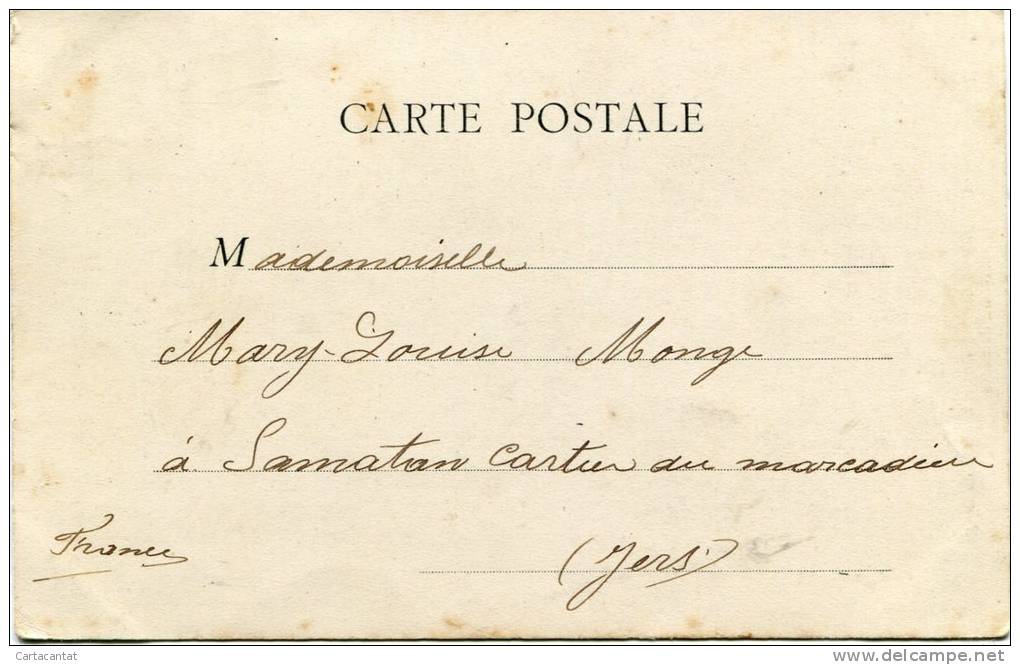 CARTE POSTALE
Mademoiselle
Mary-Louise Monge
à Samatan Cartier du marcadieu
France
(Jers)
Cartacantat
www.delcampe.net